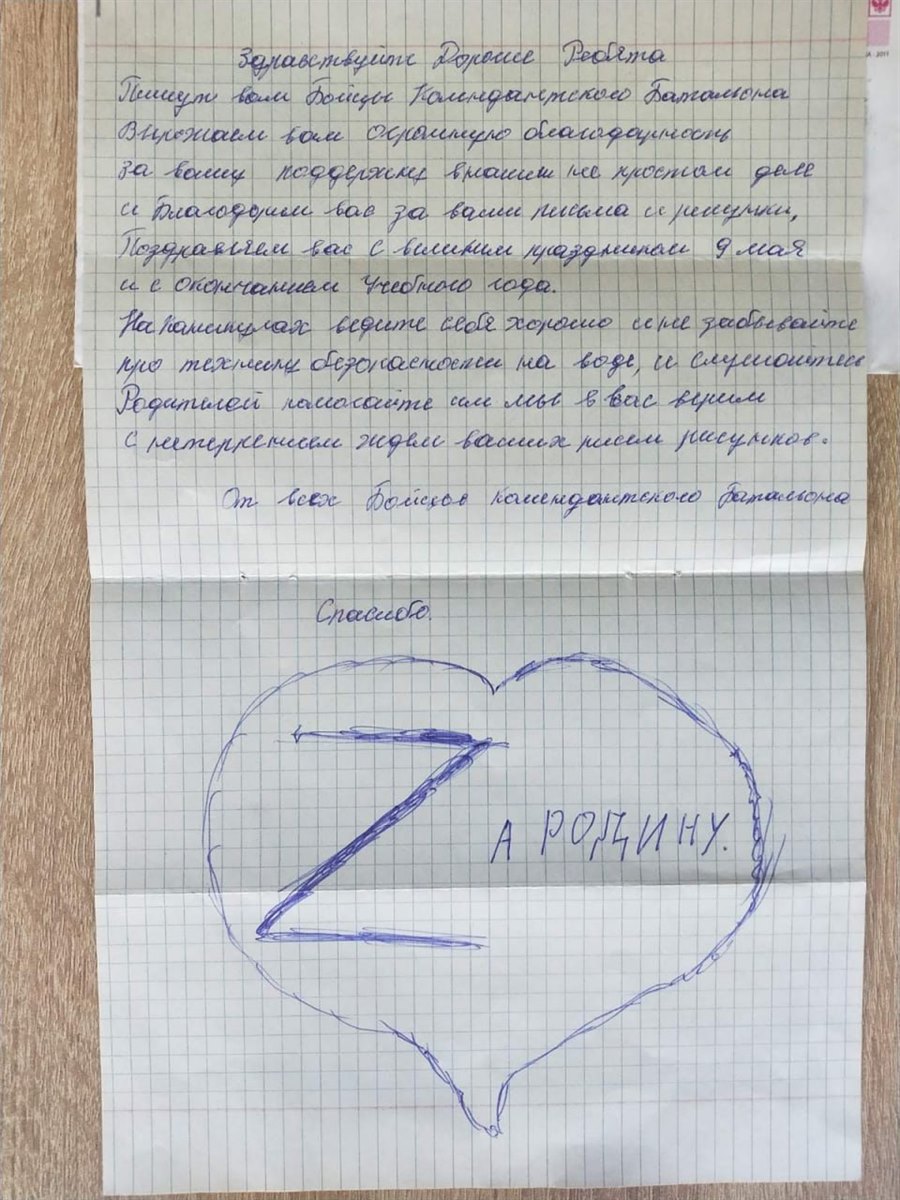 Здравствуйте Дорогие Ребята
Пишут вам Бойцы Комендантского Батальона
Выражаем вам огромную благодарность
за вашу поддержку внашем не простом деле
и Благодарим вас за ваши письма и рисунки,
Поздравляем вас с великим праздником 9 мая
и с окончанием Учебного года.
На каникулах ведите себя хорошо и не забывайте
про технику безопасности на воде, и слушайтесь
Родителей помогайте им мы в вас верим
с нетерпением ждем ваших писем рисунков.
От всех Бойцов Комендантского Батальона
Спасибо.
Z А РОДИНУ.
2011